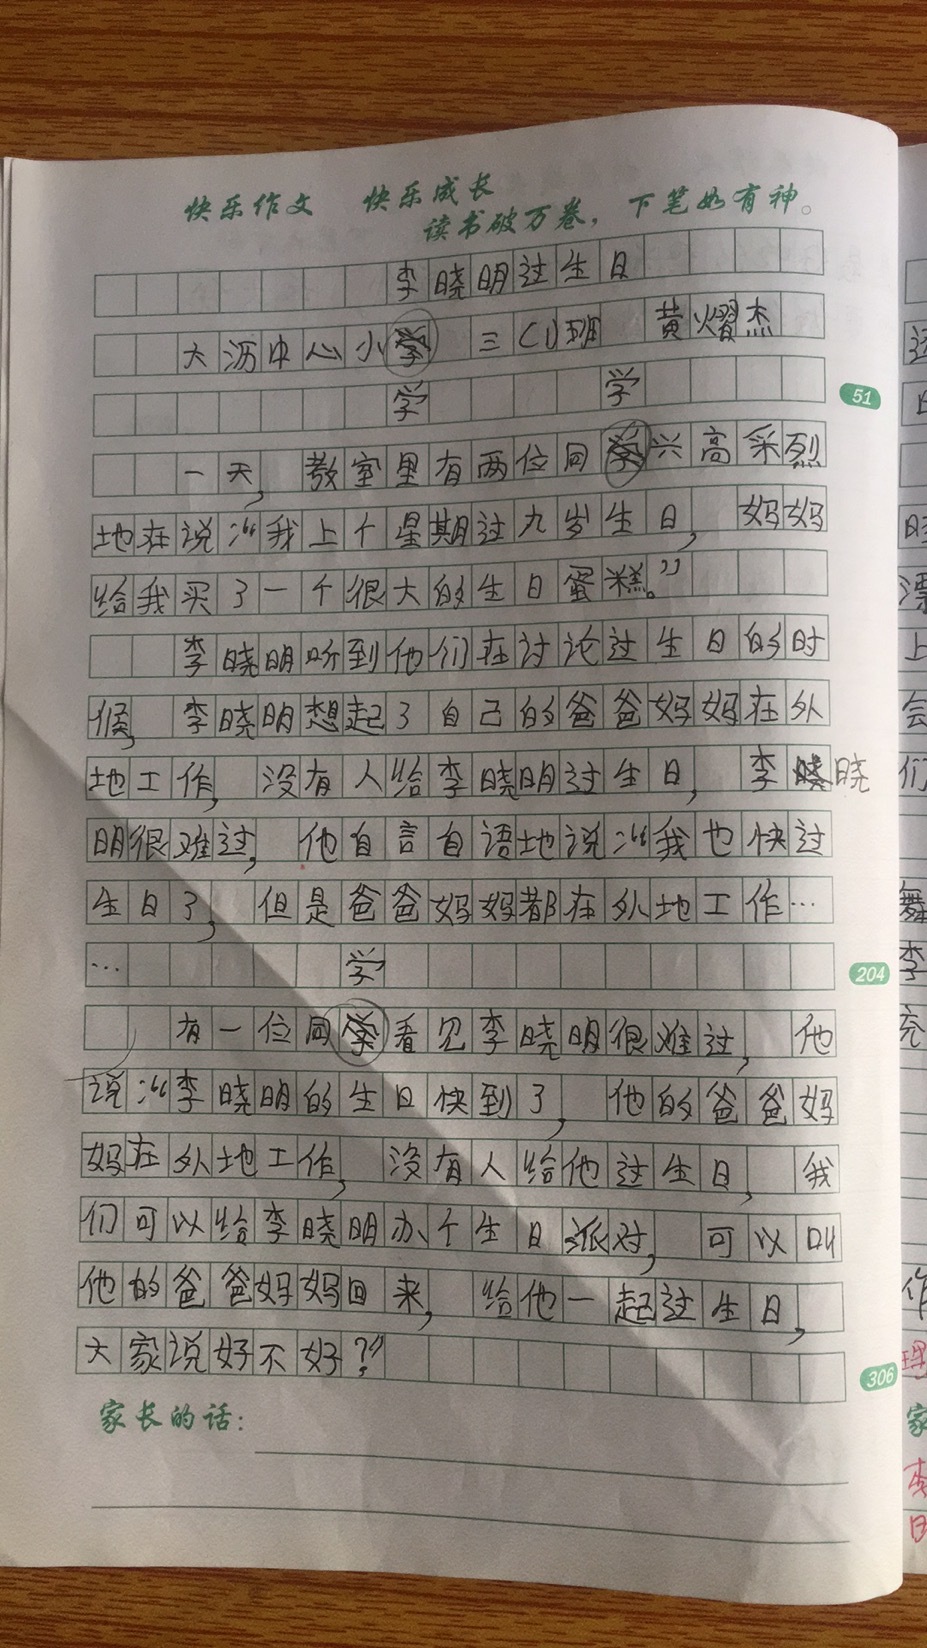 快乐作文 快乐成长
读书破万卷，下笔如有神。
李晓明过生日
大沥中心小学 三(1)班 黄熠杰
学 学
51
一天，教室里有两位同学兴高采烈
地在说：“我上个星期过九岁生日，妈妈
给我买了一个很大的生日蛋糕。”
李晓明听到他们在讨论过生日的时
候，李晓明想起了自己的爸爸妈妈在外
地工作，没有人给李晓明过生日，李晓
明很难过，他自言自语地说：“我也快过
生日了，但是爸爸妈妈都在外地工作…
… 学
204
有一位同学看见李晓明很难过，他
说：“李晓明的生日快到了，他的爸爸妈
妈在外地工作，没有人给他过生日，我
们可以给李晓明办个生日派对，可以叫
他的爸爸妈妈回来，给他一起过生日，
大家说好不好？”
306
家长的话：